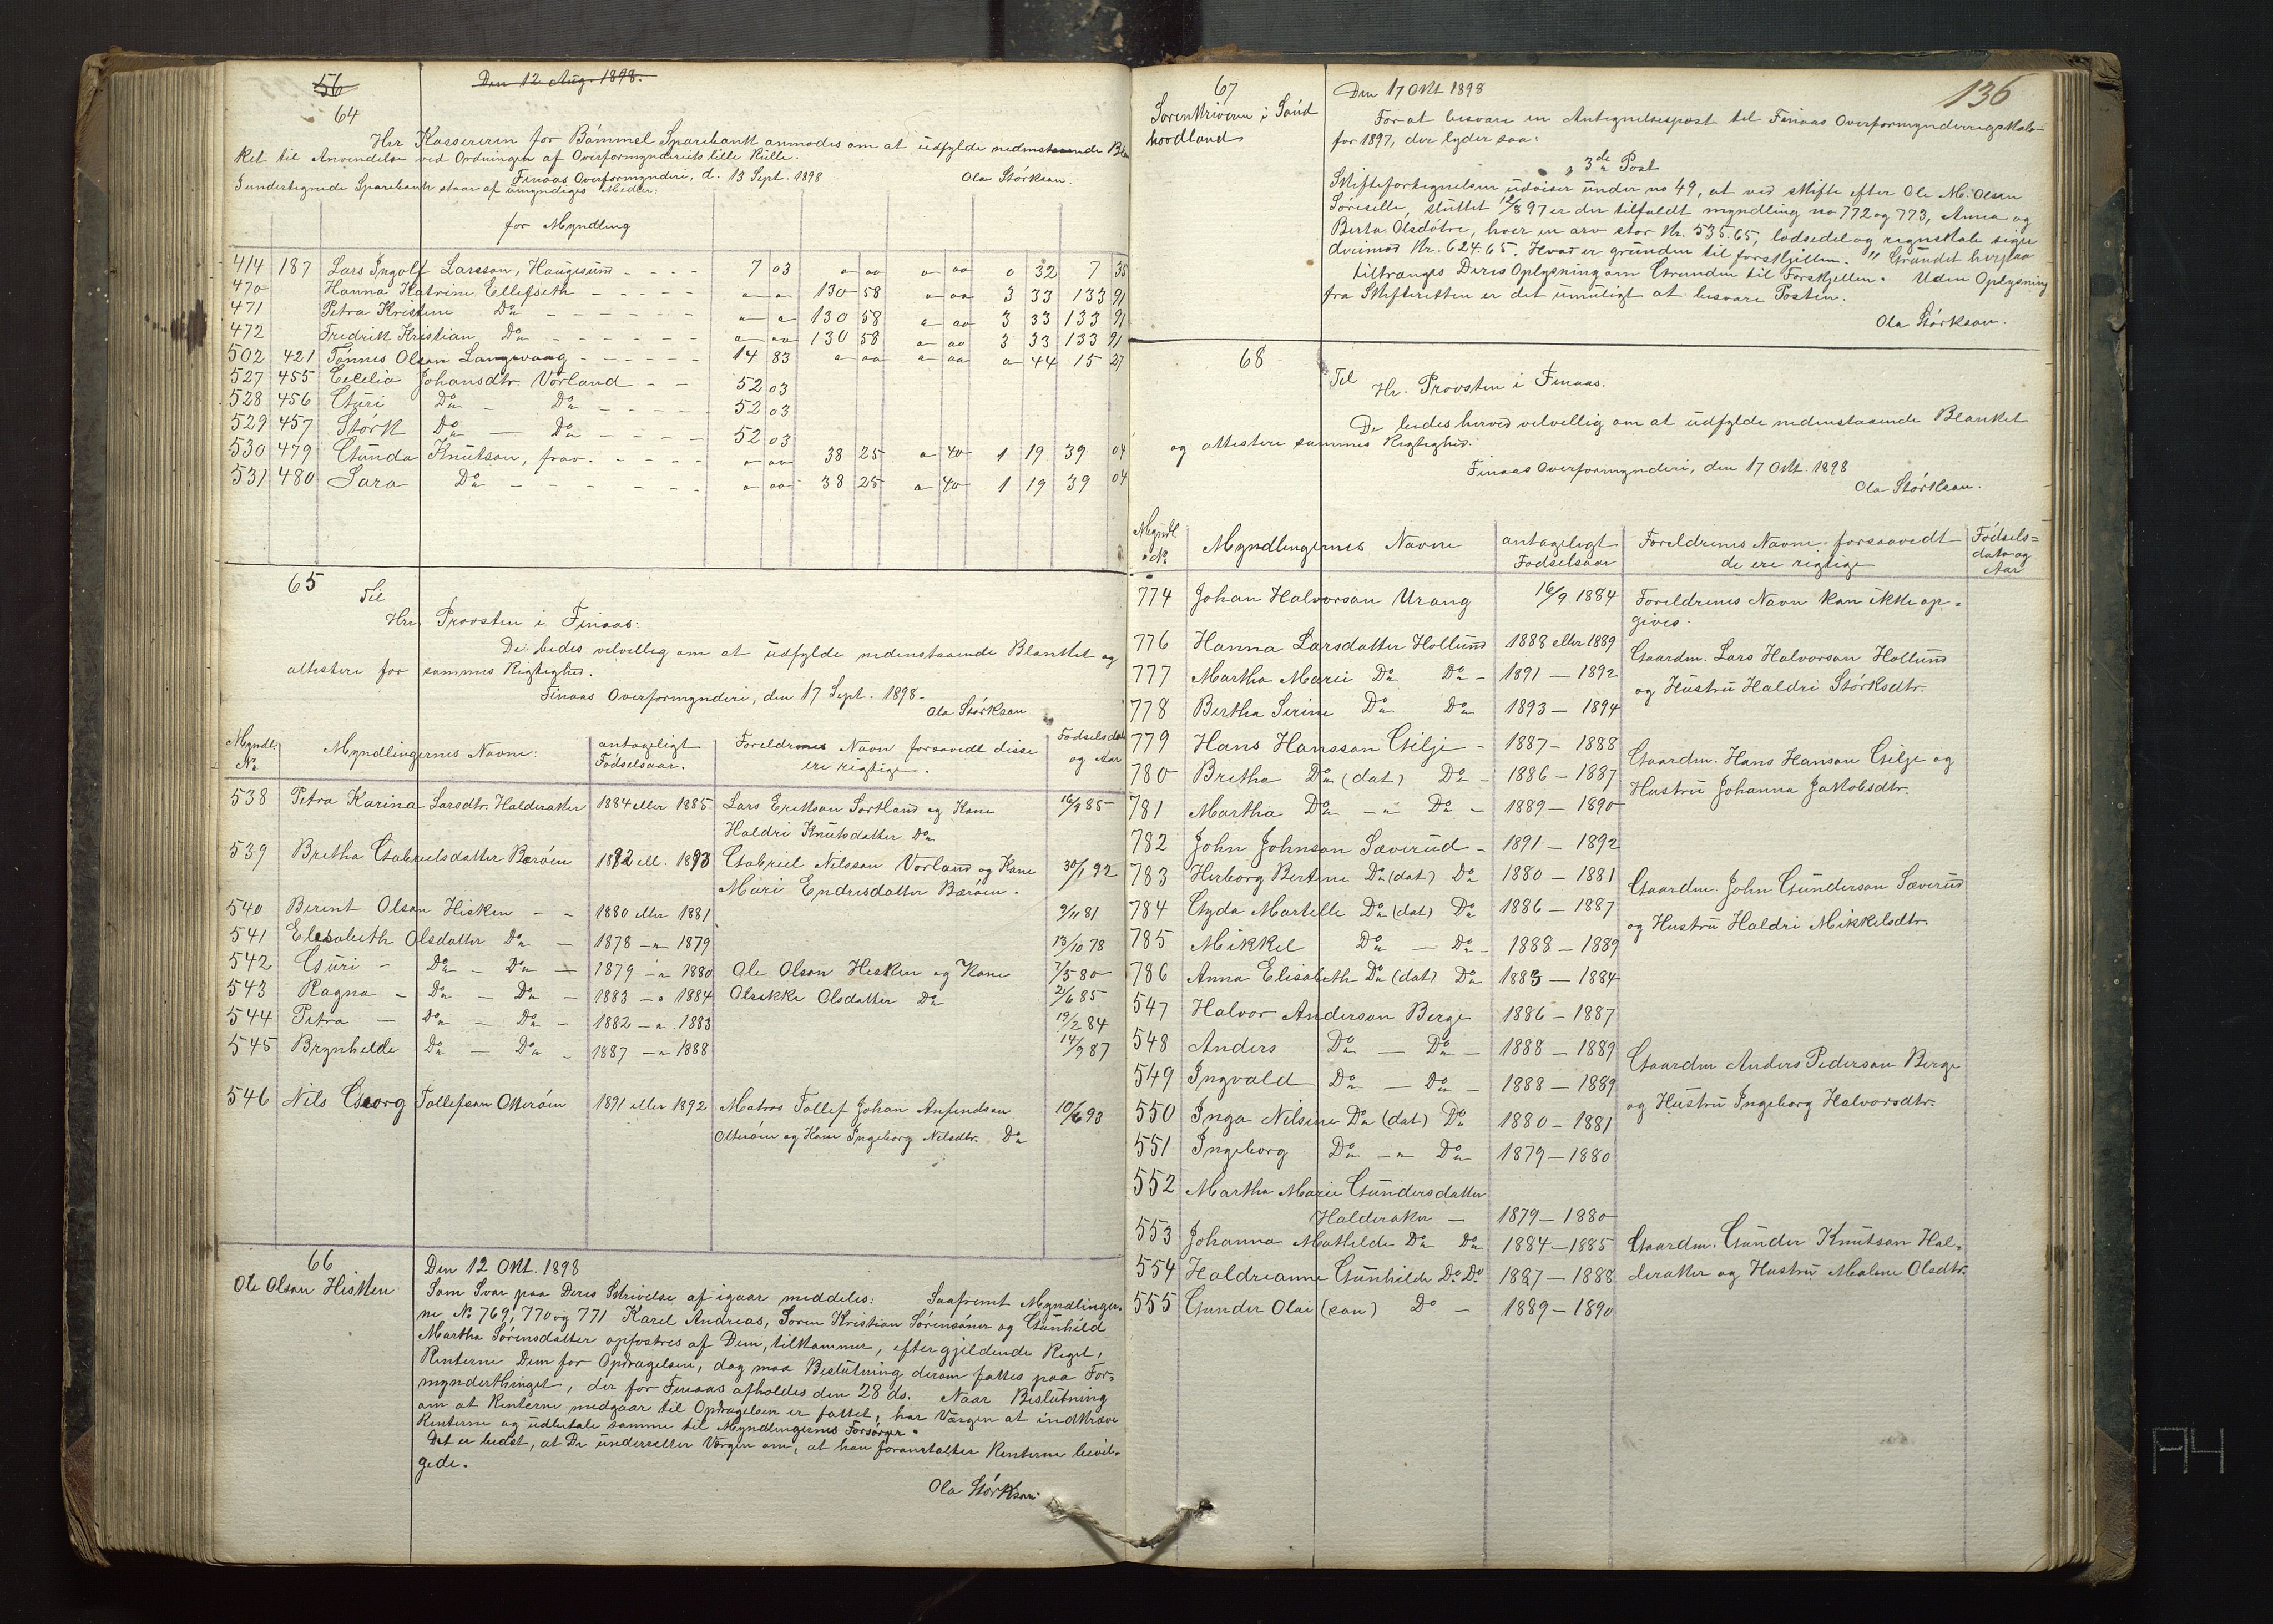 56
Den 12 Aug. 1898.
64
Hrr Kassereren for Bømmel Sparebank anmodes om at udfylde nedenstaaende Blan
ket til Anvendelse ved Ordningen af Overformynderiets lille Rulle.
Finaas Overformynderi, d. 13 Sept. 1898 Ola Størkson.
I undertegnede Sparebank staar af umyndiges Midler:
for Myndling
414 187 Lars Ingolf Larsson, Haugesund - - - - 7 03 " " " " " 0 32 7 35
470 Hanna Katrine Ellefseth - - - - - " " 130 58 " " " 3 33 133 91
471 Petra Kristine Do - - - - - - " " 130 58 " " " 3 33 133 91
472 Fredrik Kristian Do - - - - - - " " 130 58 " " " 3 33 133 91
502 421 Tønnes Olson Langevaag - - - - - - 14 83 " " " " " 44 15 27
527 455 Cecelia Johansdtr. Vorland - - 52 03
528 456 Guri Do - Do - - - - - 52 03
529 457 Størk Do — Do - - - - - 52 03
530 479 Gunda Knutson, frav. - - - - " " 38 25 " 40 1 19 39 04
531 480 Sara Do - - - - - - " " 38 25 " 40 1 19 39 04
65
Til
Hrr. Provsten i Finaas:
De bedes velvillig om at udfylde nedenstaaende Blanket og
attestere for sammes Rigtighed.
Finaas Overformynderi, den 17 Sept. 1898.
Ola Størkson
Myndl. No Myndlingernes Navne: antageligt Fødselsaar. Foreldrenes Navn forsavidt disse ere rigtige. Fødselsdato og Aar
538 Petra Karina Larsdtr. Halderaker 1884 eller 1885 Lars Erikson Sortland og Kone 16/9 85
Haldri Knutsdatter Do
539 Bretha Gabrielsdatter Børøen 1892 ell. 1893 Gabriel Nilsson Vorland og Kone 30/1 92
Mari Endresdatter Børøen.
540 Berent Olson Hisken - - 1880 eller 1881 9/11 81
541 Elisabeth Olsdatter Do — 1878 — " 1879 13/10 78
542 Guri - Do - Do — 1879 — " 1880 Ole Olson Hisken og Kone 7/5 80
543 Ragna - Do - Do - 1883 — " 1884 Olrikke Olsdatter Do 2/6 85
544 Petra — Do - Do - 1882 — " 1883 19/2 84
545 Brynhelde Do — Do - 1887 — " 1888 14/9 87
546 Nils Georg Tollefson Otterøen 1891 eller 1892 Matros Tollef Johan Anfindson 10/6 93
Otterøen og Kone Ingeborg Nilsdtr. Do
66
Ole Olson Hisken
Den 12 Okt. 1898
Som Svar paa Deres Skrivelse af igaar meddeles: Saafremt Myndlinger-
ne No 769, 770 og 771 Karel Andreas, Søren Kristian Sørensøner og Gunhild
Martha Sørensdatter opfostres af Dem, tilkommer, efter gjeldende Regel,
Renterne Dem for Opdragelsen, dog maa Beslutning derom fattes paa For-
mynderthinget, der for Finaas afholdes den 28 ds. Naar Beslutning
om at Renterne medgaar til Opdragelsen er fattet, har Værgen at indkræve
Renterne og udbetale samme til Myndlingernes Forsørger.
Det er bedst, at De underretter Værgen om, at han foranstalter Renterne bevil-
gede.
Ola Størkson
136
67
Sorenskriveren i Sønd
hordland
Den 17 Okt 1898
For at besvare en Antegnelsespost til Finaas Overformynderregnskab
for 1897, der lyder saa:
" 3de Post
Skiftefortegnelsen udviser under no 49, at ved skifte efter Ole M. Olsen
Søreselle, sluttet 12/3 97 er der tilfaldt myndling no 772 og 773, Anna og
Berta Olsdøtre, hver en arv stor Kr. 535.65, lodsedel og regnskab siger
derimod Kr. 624.65. Hvad er grunden til forskjellen. " Grundet herpaa
tiltranges Deres Oplysning om Grunden til Forskjellen. Uden Oplysning
fra Skifteretten er det umuligt at besvare Posten.
Ola Størkson.
68
Til
Hr. Provsten i Finaas.
De bedes herved velvillig om at udfylde nedenstaaende Blanket
og attestere sammes Rigtighed.
Finaas Overformynderi, den 17 Okt. 1898
Ola Størkson.
Myndl. No Myndlingernes Navne antageligt Fødselsaar Foreldrenes Navne forsaavidt de ere rigtige Fødsels= dato og Aar
774 Johan Halvorson Urang 16/9 1884 Foreldrenes Navn kan ikke op-
gives.
776 Hanna Larsdatter Hollund 1888 eller 1889
Gaardm. Lars Halvorson Hollund
777 Martha Marie Do Do - 1891 — 1892
og Hustru Haldri Størksdtr.
778 Bertha Serine Do Do 1893 — 1894
779 Hans Hansson Gilje - 1887 - 1888
Gaardm. Hans Hanson Gilje og
780 Bretha Do (dat) Do - 1886 - 1887
Hustru Johanna Jakobsdtr.
781 Martha Do - " Do - 1889 - 1890
782 John Johnson Sæverud - 1891 - 1892
783 Herborg Bertine Do (dat) Do 1880 - 1881
Gaardm. John Gunderson Sæverud
784 Gyda Martelle Do (dat) Do 1886 - 1887
og Hustru Haldri Mikkelsdtr.
785 Mikkel Do — Do - 1888 - 1889
786 Anna Elisabeth Do (dat) Do 1883 — 1884
547 Halvor Anderson Berge 1886 - 1887
548 Anders Do — Do - 1888 - 1889
Gaardm Anders Pederson Berge
549 Ingvald Do — Do - 1888 - 1889
og Hustru Ingeborg Halvorsdtr.
550 Inga Nilsine Do (dat) Do 1880 - 1881
551 Ingeborg Do - " Do 1879 - 1880
552 Martha Marie Gundersdatter
Halderaker — 1879 - 1880
553 Johanna Mathilde Do Do 1884 - 1885 Gaardm. Gunder Knutson Hal-
554 Haldrianne Gunhilde Do Do 1887 - 1888 deraker og Hustru Malene Olsdtr.
555 Gunder Olai (son) Do - 1889 - 1890